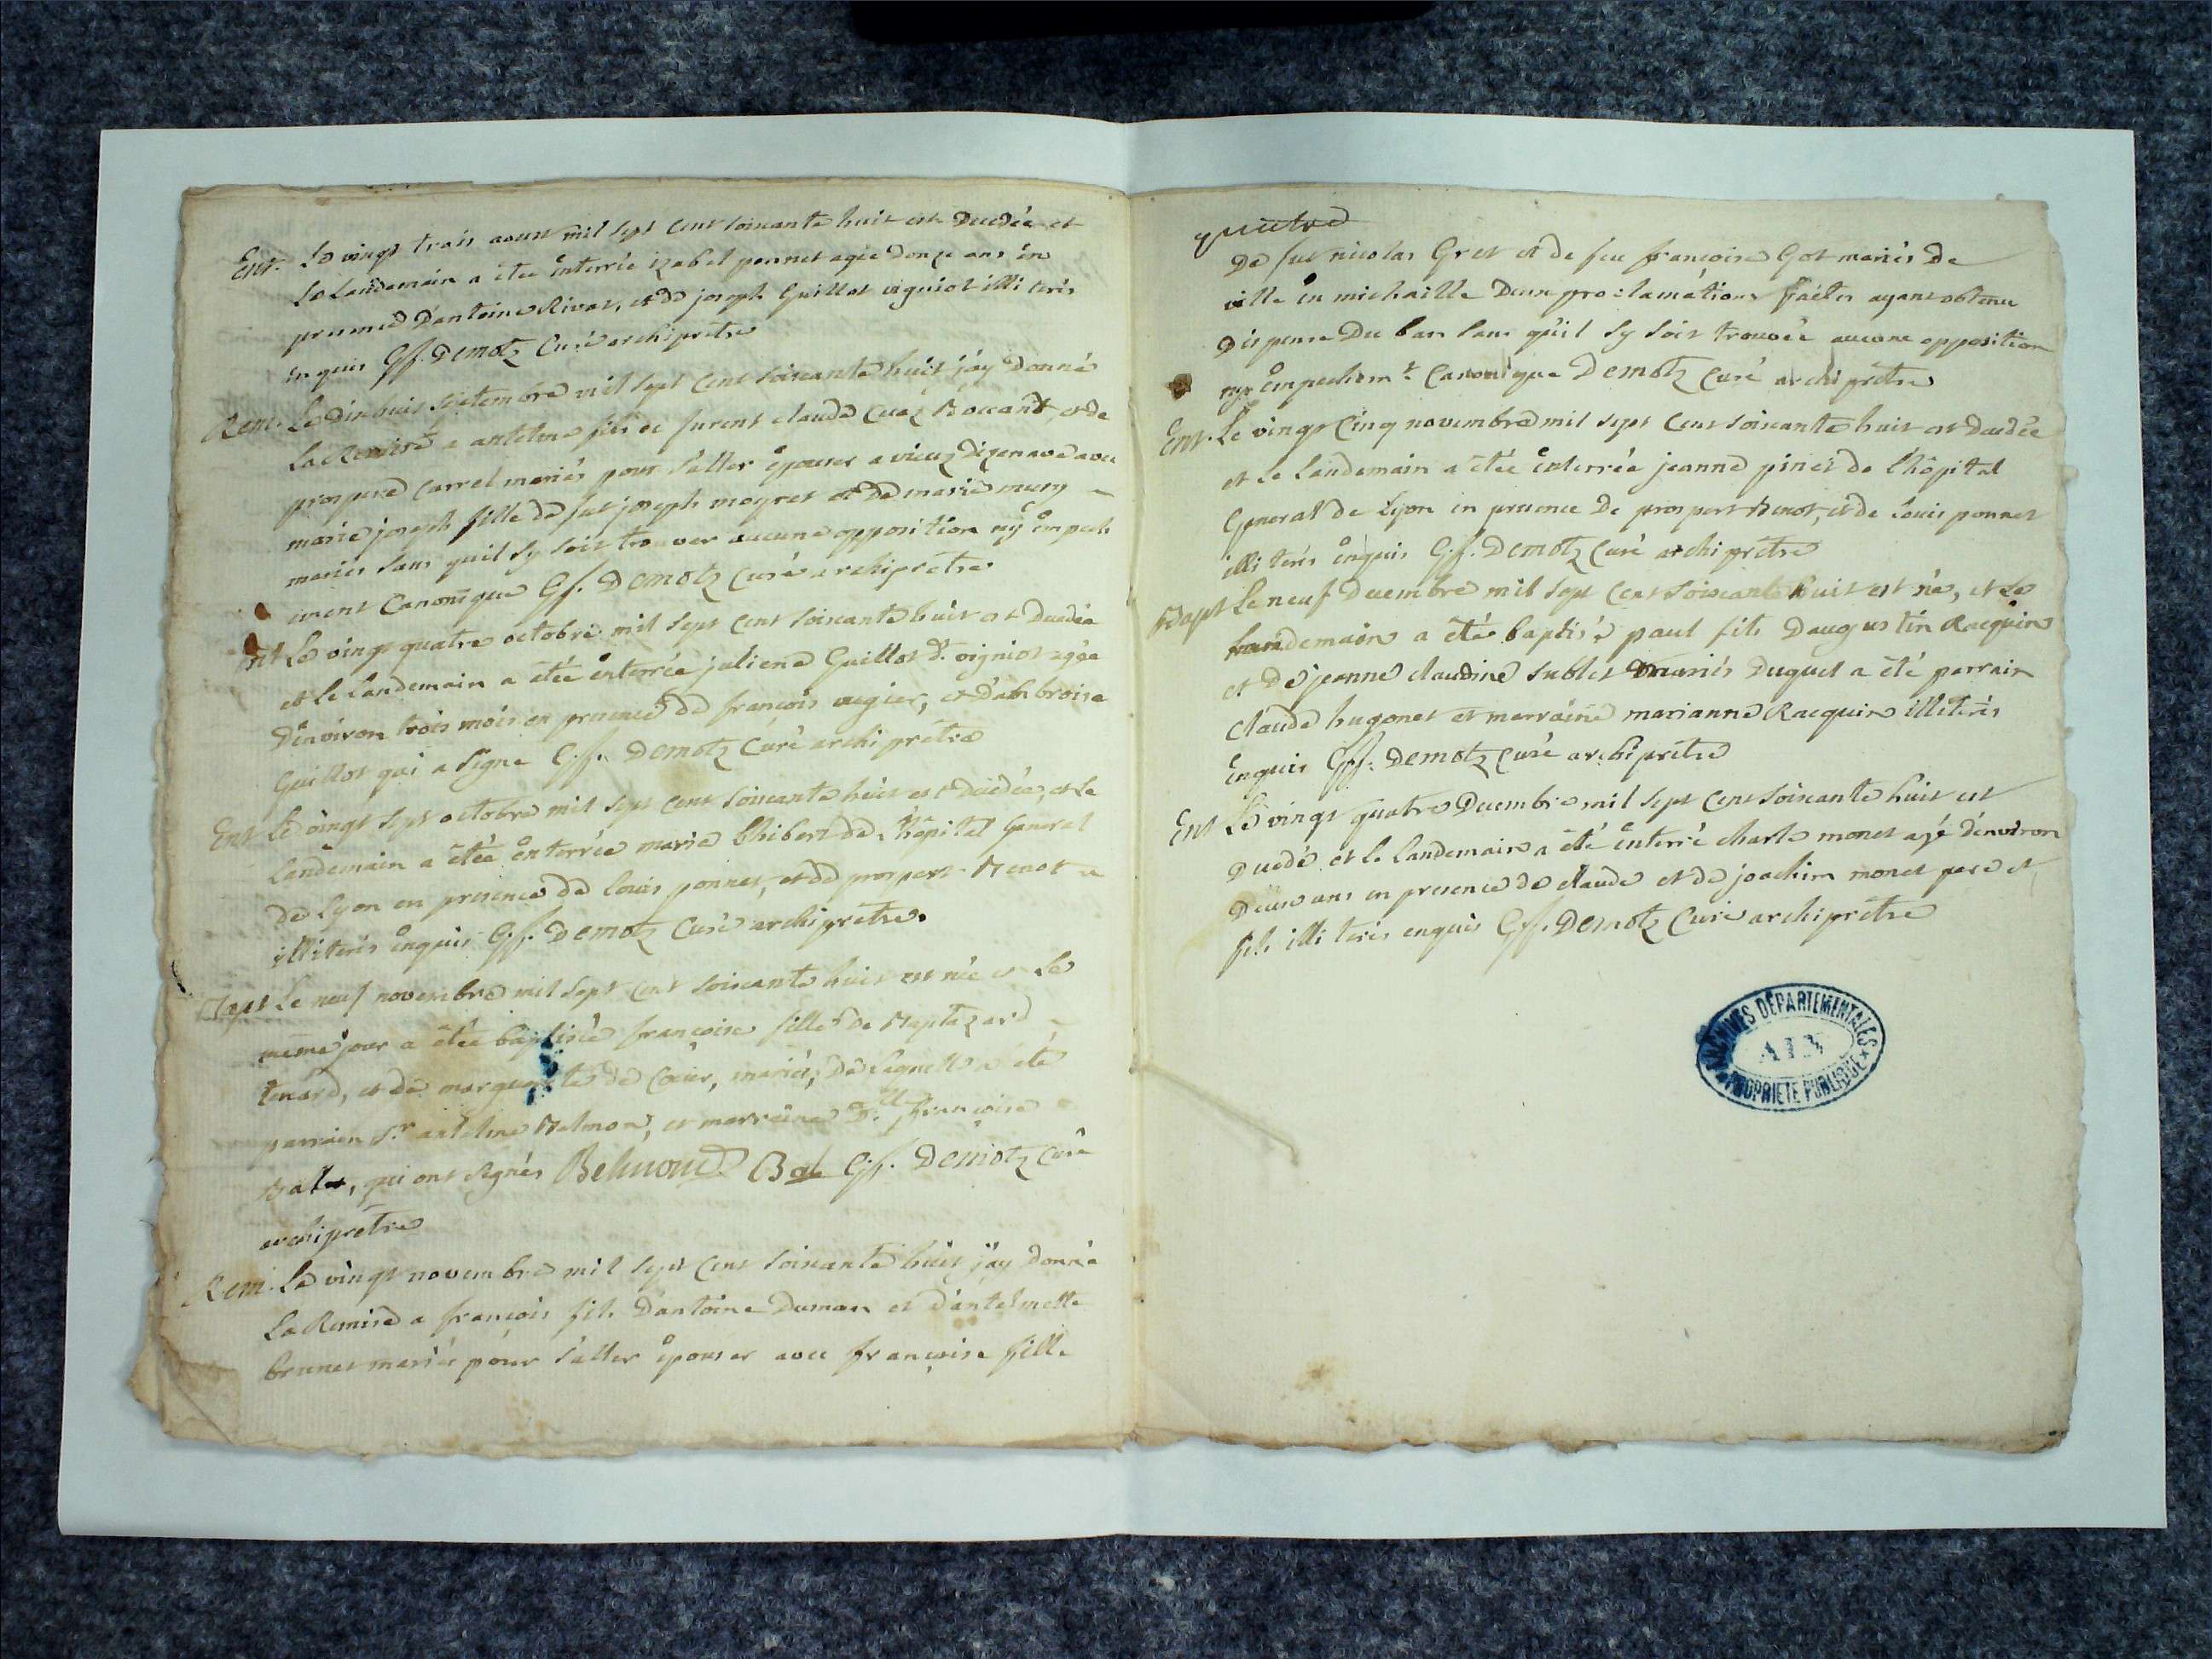 Ent. Le vingt trois aoust mil sept cent soixante huit est Decedée et
le landemain a étée enterrée izabel ponnet agée d'onze ans en
presence D'antoine Rivat, et de joseph Guillot vigniot illiterés
enquis Gf. Demotz Curé archiprêtre
Rem. Le Dixhuit septembre mil sept cent soixante huit j'ay donné
La Remise a antelme fils de furent claude Cuaz Boccard, et de
prospere Carrel mariés pour s'aller épouser a vieuz Dizenave avec
marie joseph fille de fut joseph moyret et de marie
mariés sans quil sy soit trouver aucune opposition ny empech
ement Canonique Gf. Demotz Curé archiprêtre
Ent Le vingt quatre octobre mil sept cent soixante huit est Decedée
et le landemain a étée enterrée juliene Guillot d. vigniot agée
D'environ trois mois en presence de françois augier, et D'ambroise
Guillot qui a signe Gf. Demotz Curé archiprêtre
Ent Le vingt sept octobre mil sept cent soixante huit est Decedée, et Le
landemain a étée enterrée marie Chibert de L'hôpital General
De Lyon en presence de louis ponnet, et de prospert Benot
illiterés enquis Gf. Demotz Curé archiprêtre.
Bapt Le neuf novembre mil sept cent soixante huit est née et Le
même jour a étée baptisée françoise fille de Baptazard
tenard, et de marguerite de Coeur, mariés, De Laquelle a été
parrain Sr. antelme Belmon, et marraine Dlle. françoise
Bal, qui ont signés Belmond Bal Gf. Demotz Curé
archiprêtre
Rem. Le vingt novembre mil sept cent soixante huit j'ay donné
La Remise a françois fils D'antoine Duman et D'antelmette
brunet mariés pour s'aller épouser avec françoise fille
De fut nicolas Gret et de feu françoise Got mariés de
ville en michaille D'une proclamations faites ayant obtenu
Dispense Du ban sans qu'il sy soit trouvée aucune opposition
ny empechemt. Canonique Demotz Curé archiprêtre
Ent. Le vingt Cinq novembre mil sept cent soixante huit est Decedée
et Le landemain a étée enterrée jeanne pinet de l'hôpital
General de Lyon en presence De prospert Benot, et de Louis ponnet
illiterés enquis G.f. Demotz Curé archiprêtre
Bapt Le neuf Decembre mil sept cent soixante huit est né, et Le
landemain a été baptisé paul fils D'augustin Racquin
et De jeanne claudine sublet mariés Duquel a été parrain
Claude hugonet et marraine marianne Racquin illiterés
Enquis Gf. Demotz Curé archiprêtre
Ent Le vingt quatre Decembre mil sept cent soixante huit est
Decedé et le landemain a été enterré charle monet agé d'environ
Deux ans en presence de claude et de joachim monet pere et
fils illiterés enquis Gf. Demotz Curé archiprêtre
ARCHIVES DÉPARTEMENTALES
AIN
PROPRIETE PUBLIQUE